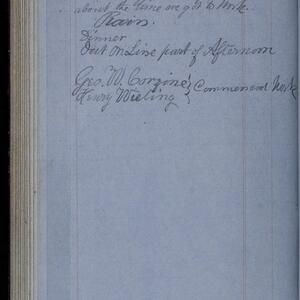 about the time we got to work.
Rain.
Dinner
Out on Line part of Afternoon
Geo. W. Corzine } Commenced Work
Henry Wieling }